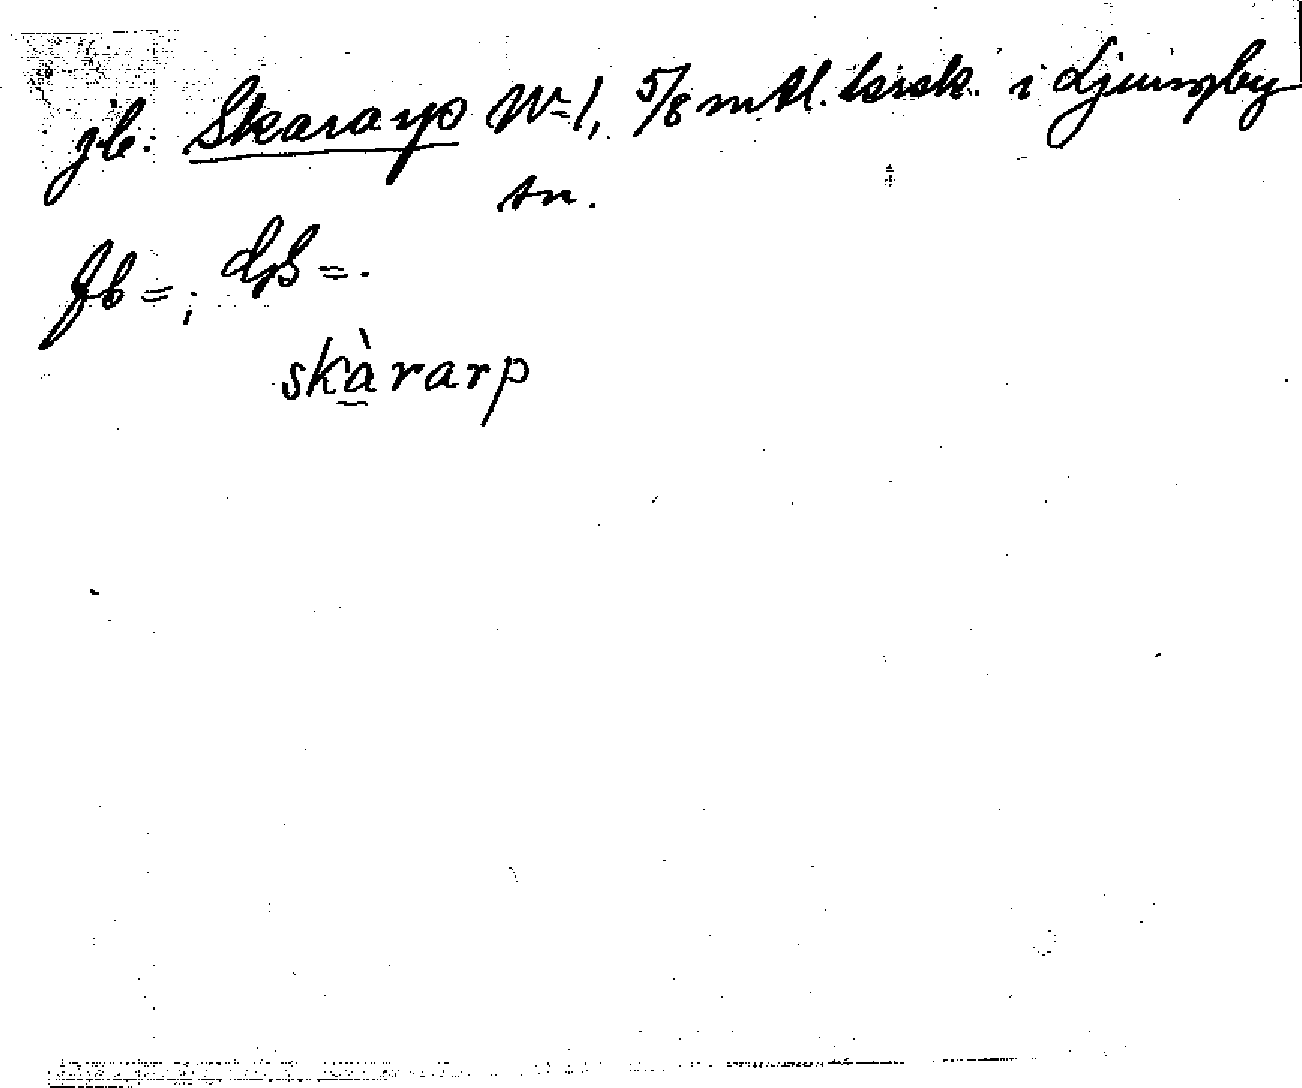 jb: Skararp N=1, 5/8 mtl. krsk. i Ljungby
sn.
fb = ; GS = .
skàrarp